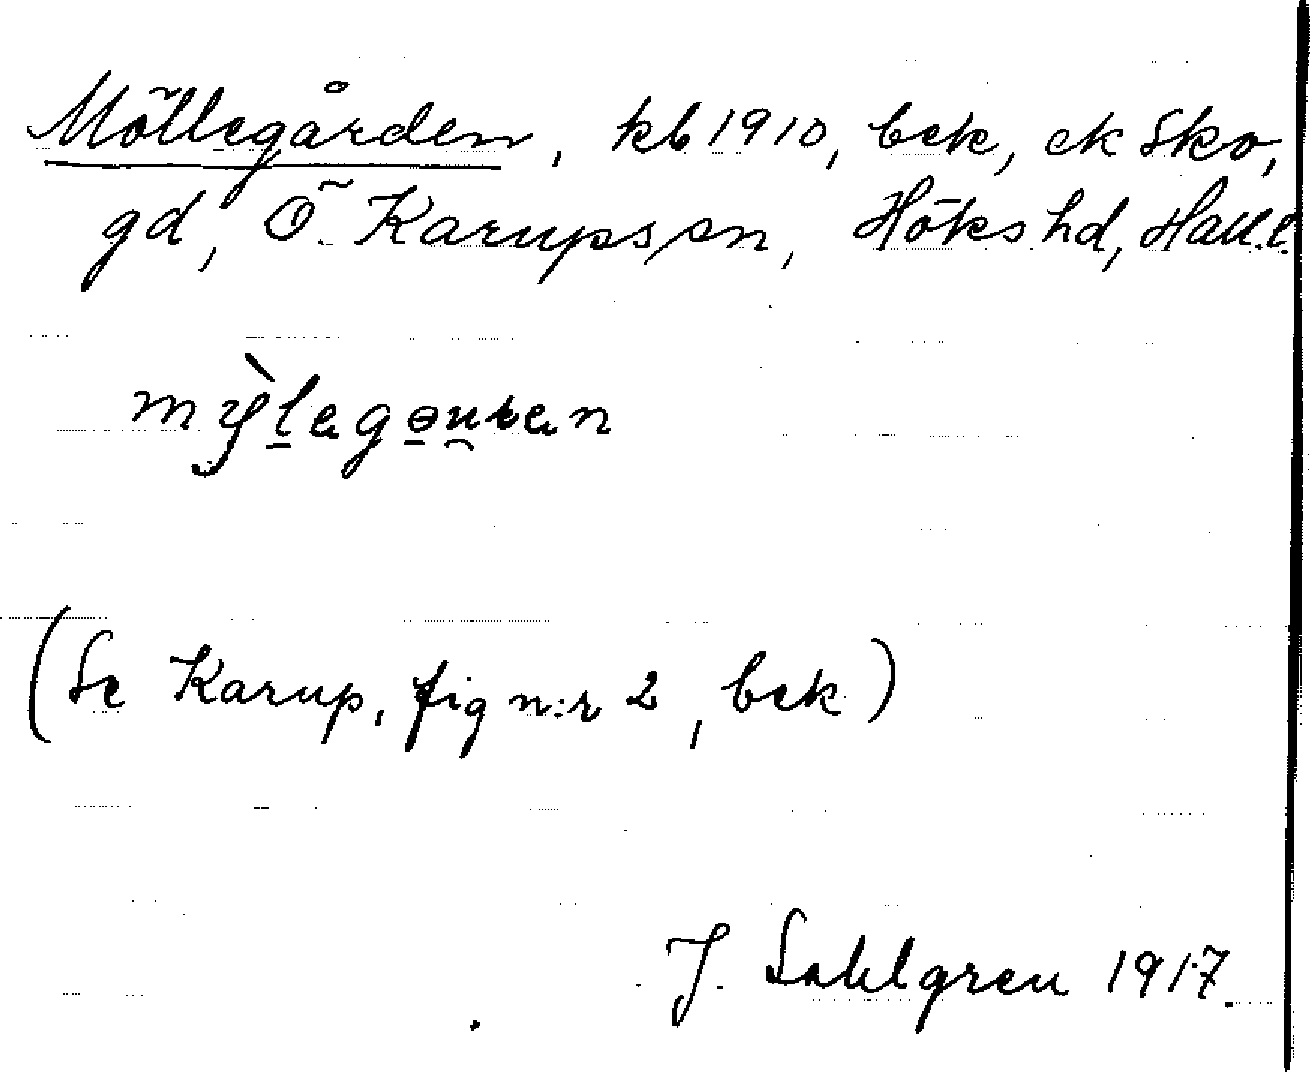 Möllegården, kb 1910, bek, ek Sko,
gd, Ö. Karups sn, Höks hd, Hall.l.
(Se Karup, fig n:r 2, bek)
J. Sahlgren 1917.